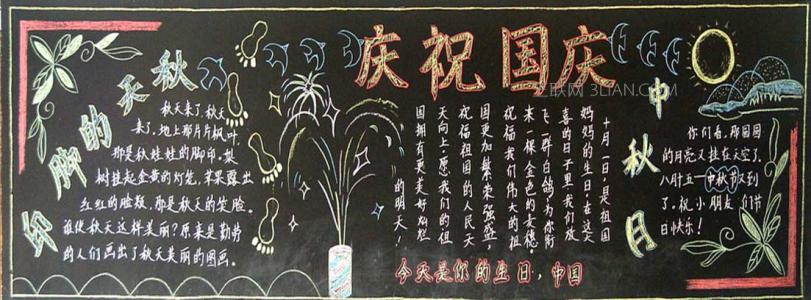 秋天的脚印
秋天来了,秋天
来了,地上那片片枫叶,
那是秋娃娃的脚印。梨
树挂起金黄的灯笼,苹果露出
红红的脸颊,那是秋天的笑脸。
谁使秋天这样美丽?原来是勤劳
的人们画出了秋天美丽的图画。
庆祝国庆
十月一日是祖国
妈妈的生日,在这大
喜的日子里,我们放
飞一群白鸽,为你衔
来一棵金色的麦穗。
祝福我们伟大的祖
国更加繁荣强盛,
祝福祖国的人民天
天向上,愿我们的祖
国拥有更美好灿烂
的明天!
今天是你的生日,中国
中秋月
你们看,那圆圆
的月亮又挂在天空了,
八月十五—中秋节又到
了,祝小朋友们节
日快乐!
3LIAN.COM